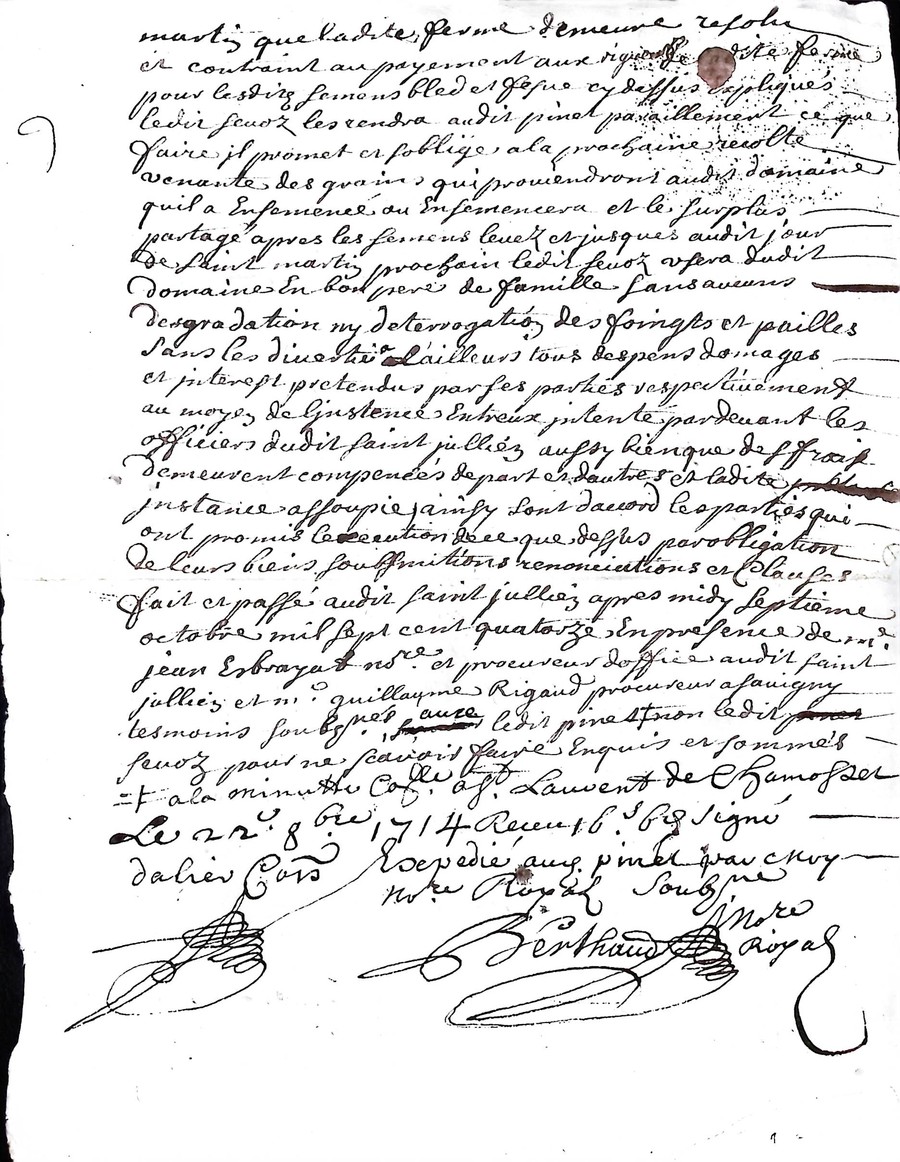 martin que ladite ferme demeure resolu
et contraint au payement aux rigueurs de dite ferme
pour lesdits semens bled et fesue cy dessus expliqués
ledit sevoz les rendra audit pinet paraillement ce que
faire jl promet et soblige ala prochaine recolte
venante des grains qui proviendront audit domaine
quil a Ensemencé ou Ensemencera et le surplus
partagé apres les semens levez et jusques audit jour
de saint martin prochain ledit sevoz vsera dudit
domaine En bon pere de famille sans aucuns
desgradation ny deterrogation des foingts et pailles
sans les divertir dailleurs tous despens domages
et interest pretendus par ses parties respectivement
au moyen de linstence Entreux jntenté pardevant les
officiers dudit saint jullien aussy bien que des ffrais
demeurent compencés de part et dautres et ladite
jnstance assoupie ainsy sont dacord les parties qui
ont promis lexecution de ce que dessus par obligation
de leurs biens soubsmitions renonciations et Clauses
fait et passé audit saint jullien apres midy septieme
octobre mil sept cent quatorze En presence de me
jean Erbrayat nore et procureur doffice audit saint
jullien et me guillayme Rigaud procureur a savigny
tesmoins soubsnés avec ledit pinet ‡ non ledit
sevoz pour ne scavoir faire Enquis et sommés
‡ ala minutte Collé. a st Laurent de Chamosset
Le 22e 8bre 1714 Receu 16s 6ds signé
dalier Cors Expedié aud. pinet par moy
nore Royal soubsne
Berthaud nore Royal